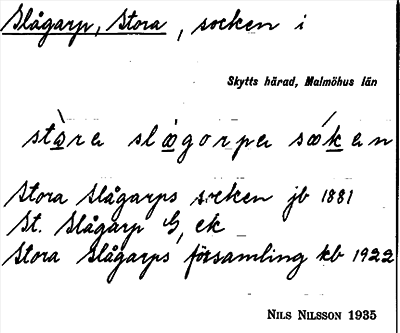 Slågarp, Stora, socken i
Skytts härad, Malmöhus län
stàra slàgorpa sǿkan
Stora Slågarps socken jb 1881
St. Slågarp G, ek
Stora Slågarps församling kb 1922
NILS NILSSON 1935